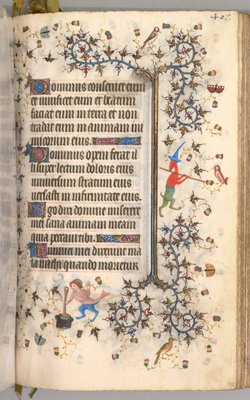 Dominus conseruet eum
et uiuificet eum et beatum
faciat eum in terra et non
tradat eum in animam ini
micorum eius.
Dominus opem ferat il
li super lectum doloris eius
uniuersum stratum eius
uersasti in infirmitate eius.
Ego dixi domine miserere
mei sana animam meam
quia peccaui tibi.
Inimici mei dixerunt ma
la michi quando morietur